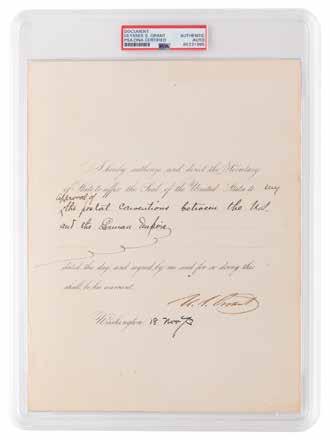 DOCUMENT
ULYSSES S. GRANT
PSA/DNA CERTIFIED
AUTHENTIC
AUTO
I hereby authorize and direct the Secretary
of State to affix the Seal of the United States to my
approval of
the postal conventions between the U.S.
and the German Empire
dated this day, and signed by me and for so doing this
shall be his warrant.
U. S. Grant
Washington 18 Nov